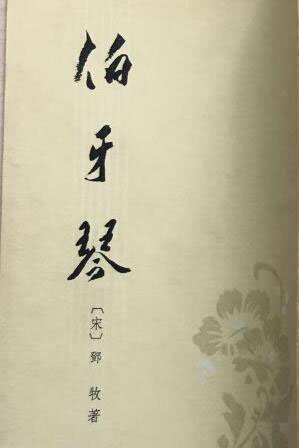 伯牙琴
〔宋〕鄧牧著